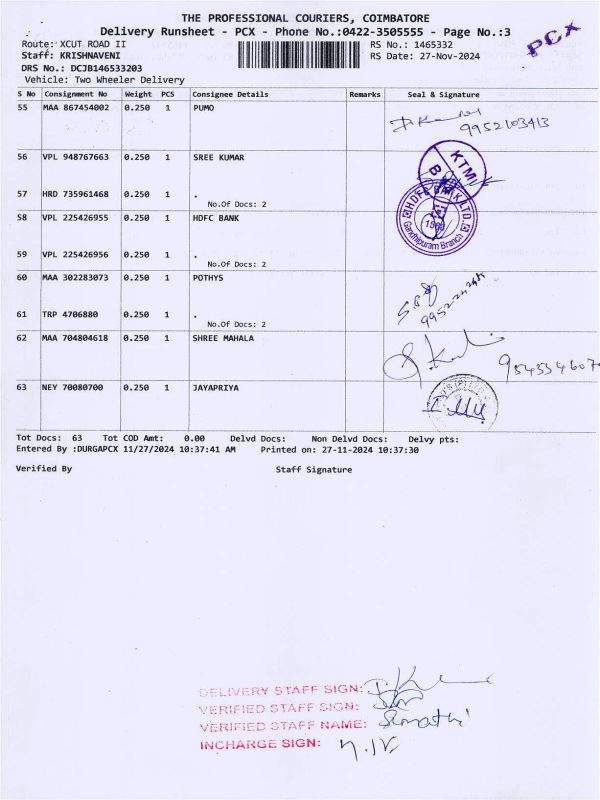 THE PROFESSIONAL COURIERS, COIMBATORE
Delivery Runsheet - PCX - Phone No.:0422-3505555 - Page No.:3
PCX
Route: XCUT ROAD II RS No.: 1465332
Staff: KRISHNAVENI RS Date: 27-Nov-2024
DRS No.: DCJB146533203
Vehicle: Two Wheeler Delivery
S No Consignment No Weight PCS Consignee Details Remarks Seal & Signature
55 MAA 867454002 0.250 1 PUMO
9952103413
56 VPL 948767663 0.250 1 SREE KUMAR
KTM
57 HRD 735961468 0.250 1 .
No.Of Docs: 2
HDFC BANK LTD.
Gandhipuram Branch
58 VPL 225426955 0.250 1 HDFC BANK
59 VPL 225426956 0.250 1 .
No.Of Docs: 2
60 MAA 302283073 0.250 1 POTHYS
61 TRP 4706880 0.250 1 .
No.Of Docs: 2
62 MAA 704804618 0.250 1 SHREE MAHALA
63 NEY 70080700 0.250 1 JAYAPRIYA
Tot Docs: 63 Tot COD Amt: 0.00 Delvd Docs: Non Delvd Docs: Delvy pts:
Entered By :DURGAPCX 11/27/2024 10:37:41 AM Printed on: 27-11-2024 10:37:30
Verified By Staff Signature
DELIVERY STAFF SIGN:
VERIFIED STAFF SIGN:
VERIFIED STAFF NAME: Sumathi
INCHARGE SIGN: